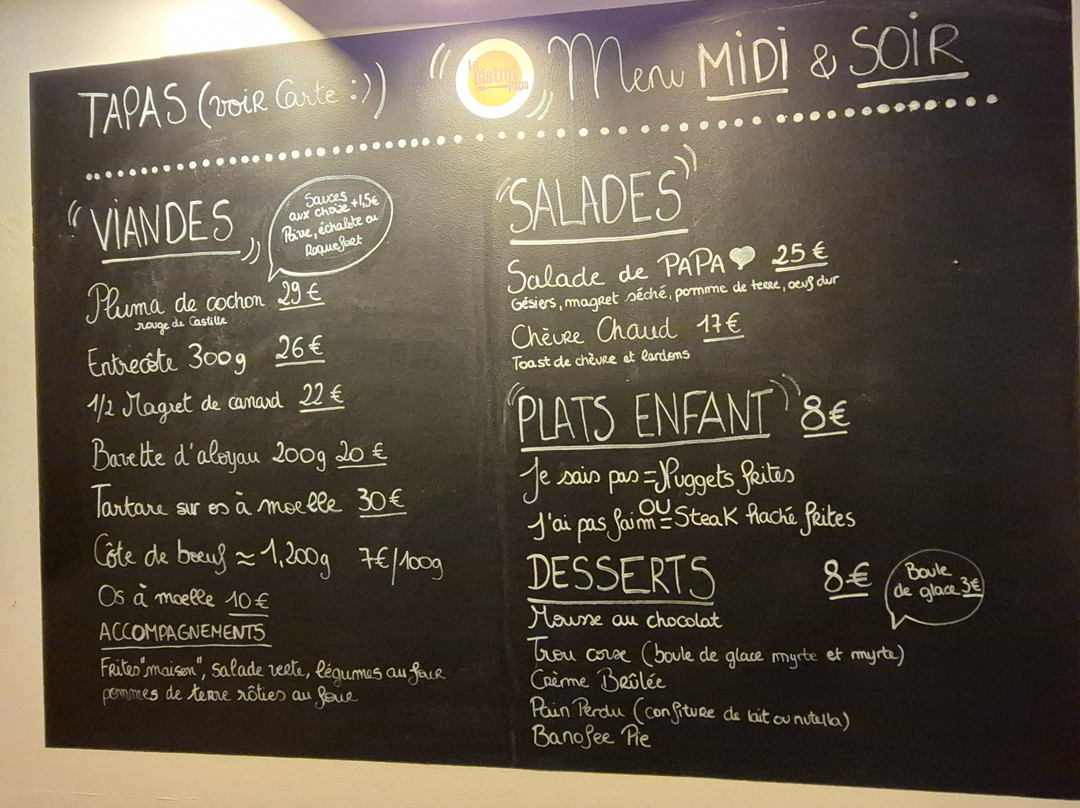 TAPAS (voir Carte :))
Le Bistrot Papa
Menu MiDi & SOiR
"VIANDES"
Sauces
aux choix +1,5€
Poivre, échalote ou
Roquefort
Pluma de cochon 29€
rouge de Castille
Entrecôte 300g 26€
1/2 Magret de canard 22€
Bavette d'aloyau 200g 20€
Tartare sur os à moelle 30€
Côte de boeuf ≈ 1,200g 7€/100g
Os à moelle 10€
ACCOMPAGNEMENTS
Frites "maison", salade verte, légumes au four
pommes de terre rôties au four
"SALADES"
Salade de PAPA 25€
Gésiers, magret séché, pomme de terre, oeuf dur
Chèvre Chaud 17€
Toast de chèvre et lardons
"PLATS ENFANT" 8€
Je sais pas = Nuggets frites
OU
J'ai pas faim = Steak haché frites
DESSERTS 8€
Boule
de glace 3€
Mousse au chocolat
Trou corse (boule de glace myrte et myrte)
Crème Brûlée
Pain Perdu (confiture de lait ou nutella)
Banofee Pie